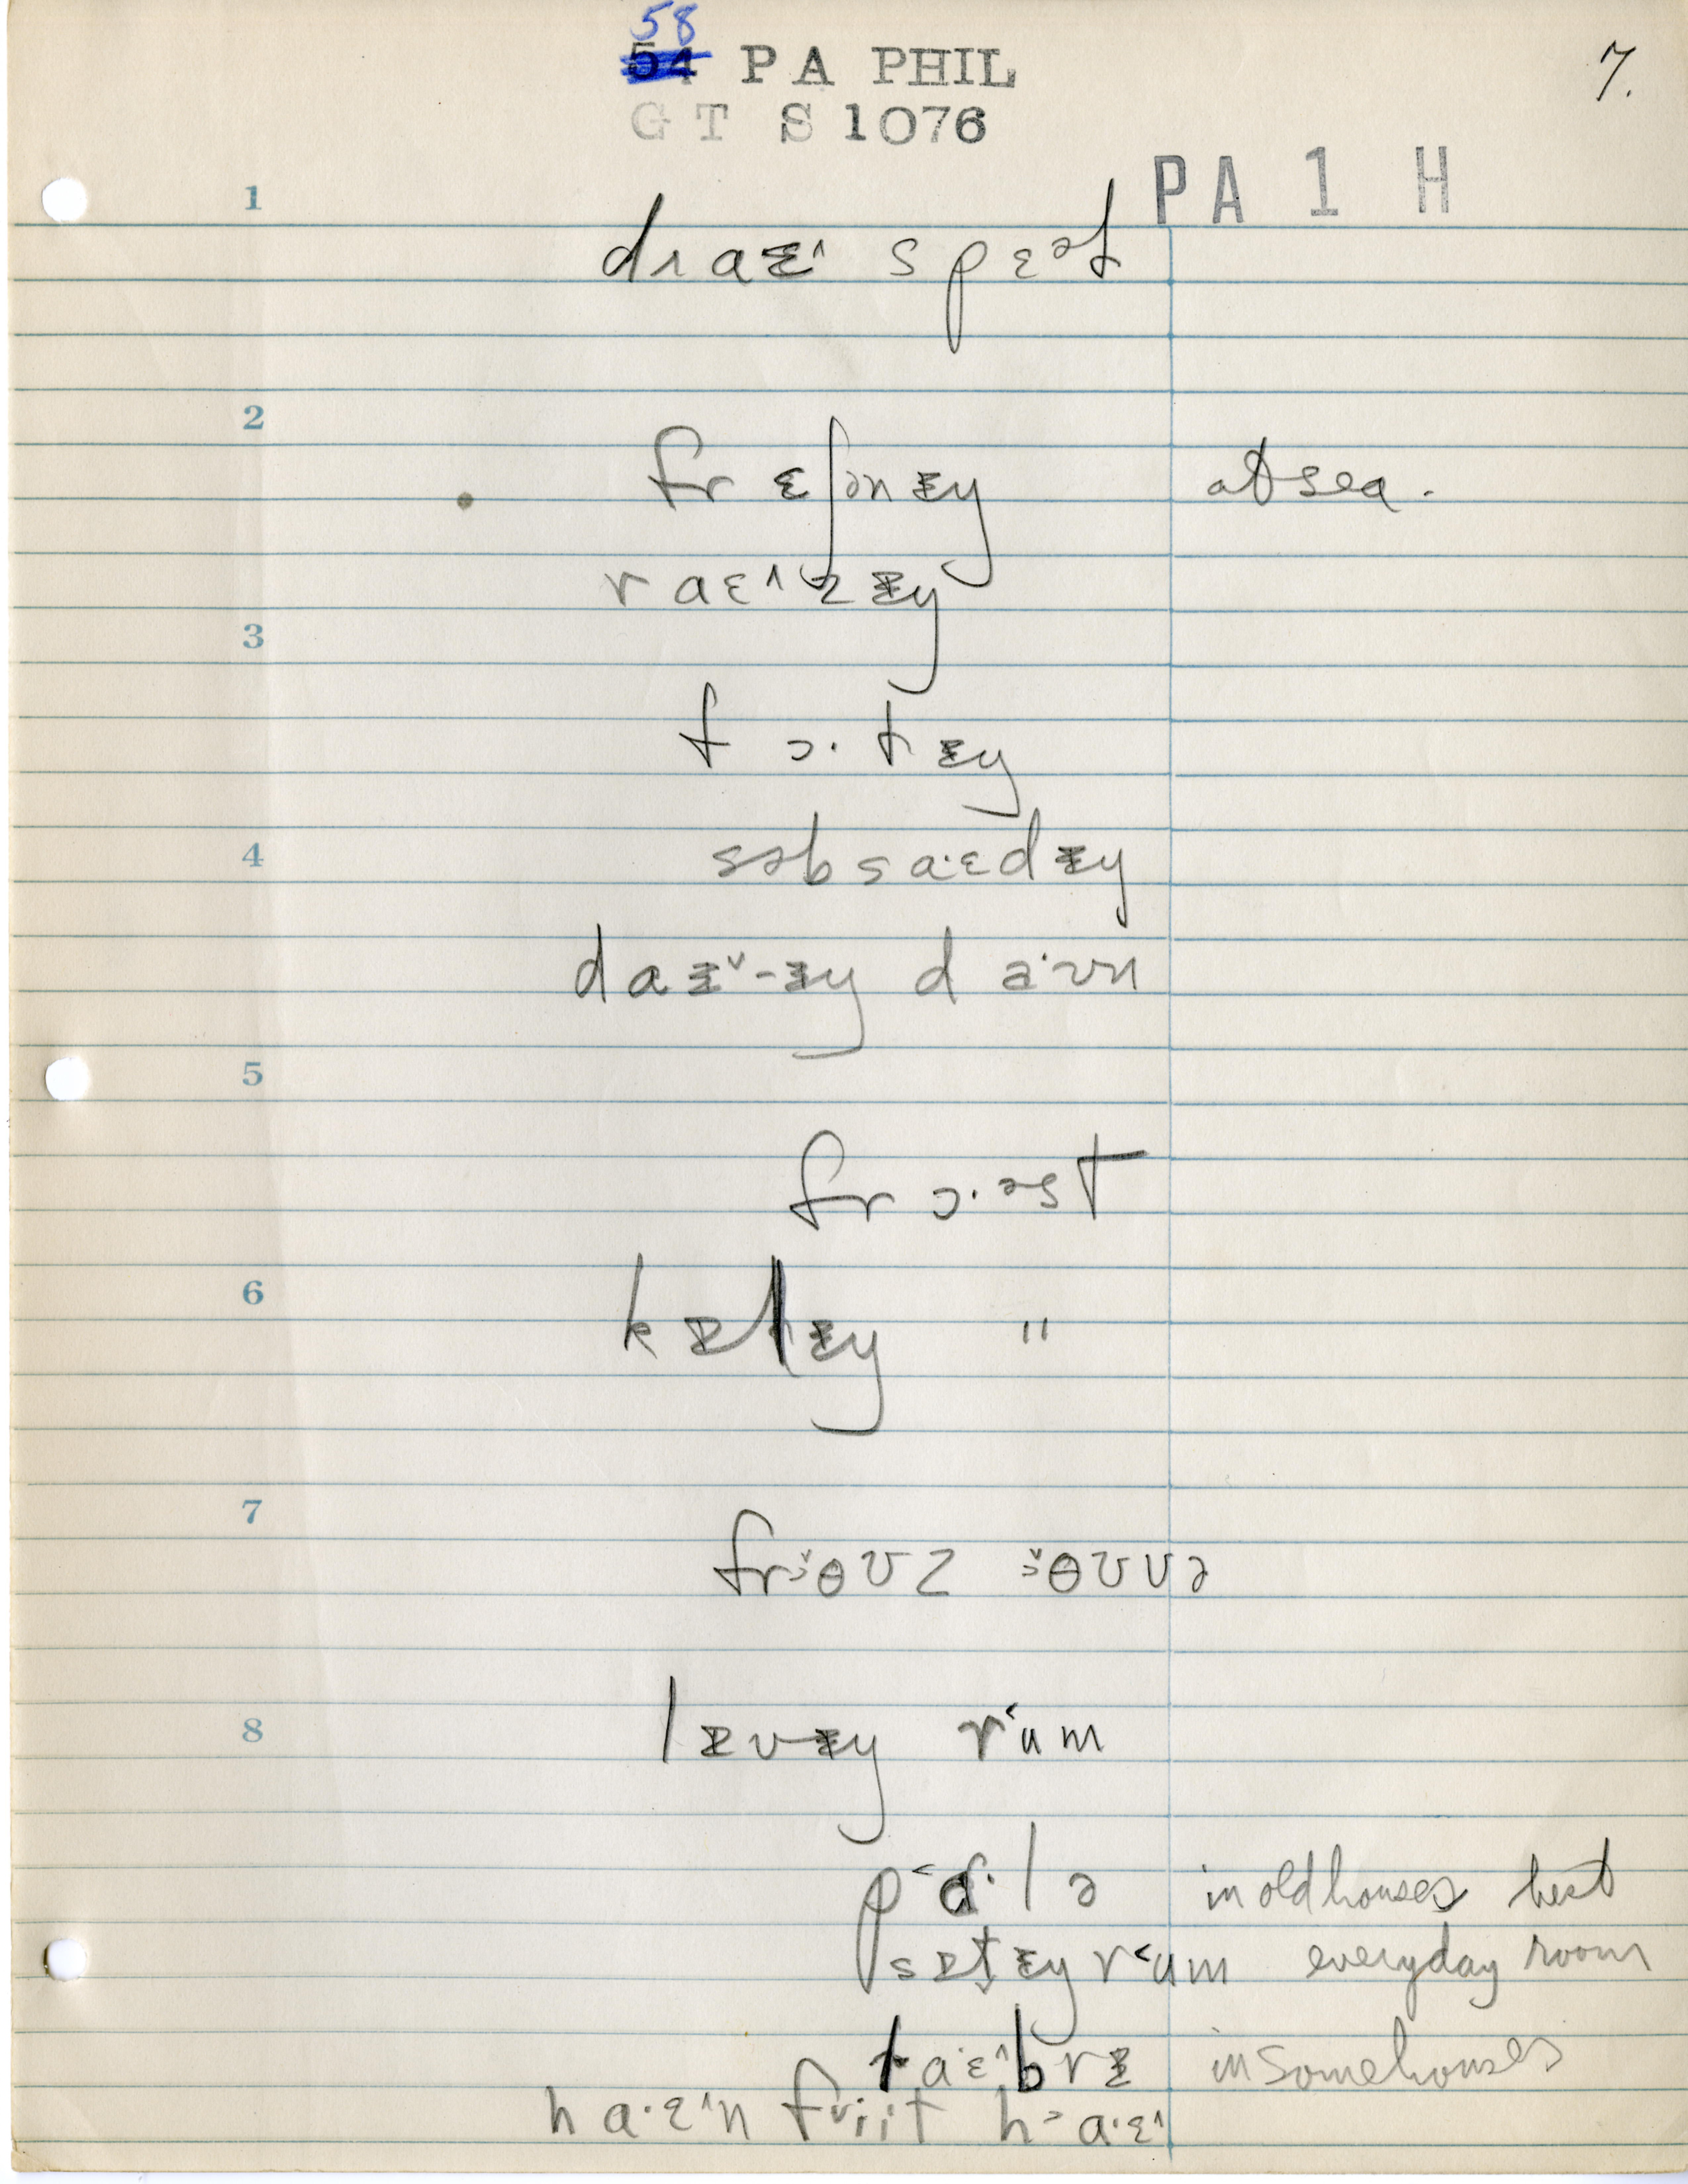 58
54 PA PHIL 7.
GT S1076
PA 1 H
1
draɪ˄ spɛət
2
frɛʃənɪŋ at sea.
raɛ˄zɪŋ
3
fɔ·tɪŋ
4
səbsa·ɛdɪŋ
daɪ˅-ɪŋ da·ʊn
5
frɔ·əst
6
kɪlɪŋ "
7
frɔ˅ɵʊz ɔ˅ɵʊvə
8
lɪvɪŋ r˂um
p˂ɑ·lə in old houses best
sɪt̬ɪŋ r˂um everyday room
la·ɛ˄brɪ in some houses
ha·ɛ˄n friit h˃a·ɛ˄